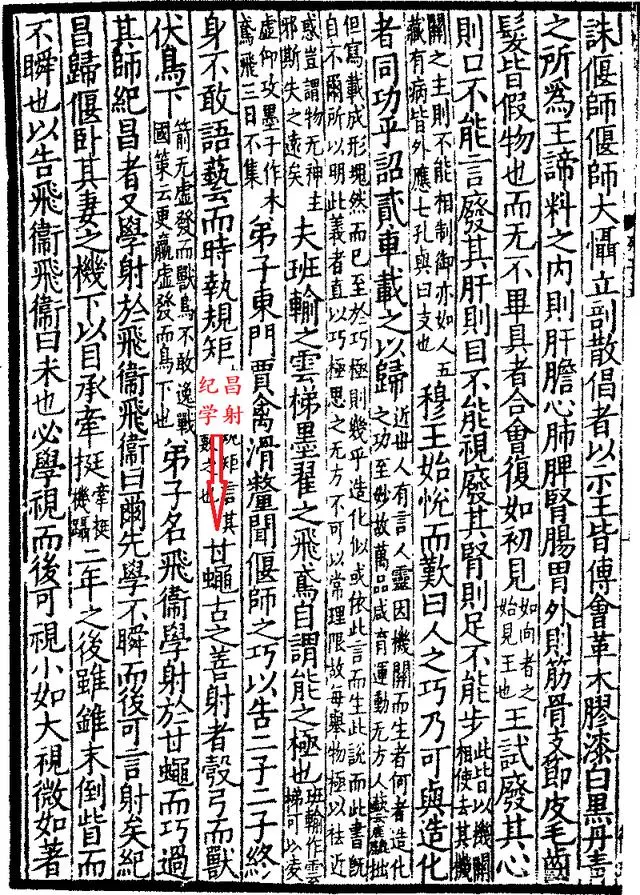 誅偃師偃師大懾立剖散倡者以示王皆傅會革木膠漆白黑丹青
之所為王諦料之内則肝膽心肺脾腎腸胃外則筋骨支節皮毛齒
髮皆假物也而无不畢具者合會復如初見如向者之始見王也王試廢其心
則口不能言廢其肝則目不能視廢其腎則足不能步此皆以機關相使去其機
關之主則不能相制御亦如人五藏有病皆外應七孔與四支也穆王始悅而歎曰人之巧乃可與造化
者同功乎詔貳車載之以歸近世人有言人靈因機關而生者何者造化之功至妙故萬品咸育運動无方人藝麤拙
但寫載成形塊然而已至於巧極則幾乎造化似或依此言而生此說而此書既自不爾所以明此義者直以巧極思之无方不可以常理限故每舉物極以祛近
惑豈謂物无神主邪斯失之遠矣夫班輸之雲梯墨翟之飛鳶自謂能之極也班輸作雲梯可以凌
虛仰攻墨子作木鳶飛三日不集弟子東門賈禽滑釐聞偃師之巧以告二子二子終
身不敢語藝而時執規矩規矩言其數之也甘蠅古之善射者彀弓而獸
伏鳥下箭无虛發而獸鳥不敢逸戰國策云更羸虛發而鳥下也弟子名飛衛學射於甘蠅而巧過
其師紀昌者又學射於飛衛飛衛曰爾先學不瞬而後可言射矣紀
昌歸偃卧其妻之機下以目承牽挺牽挺機躡二年之後雖錐末倒眥而
不瞬也以告飛衛飛衛曰未也必學視而後可視小如大視微如著
纪昌
学射